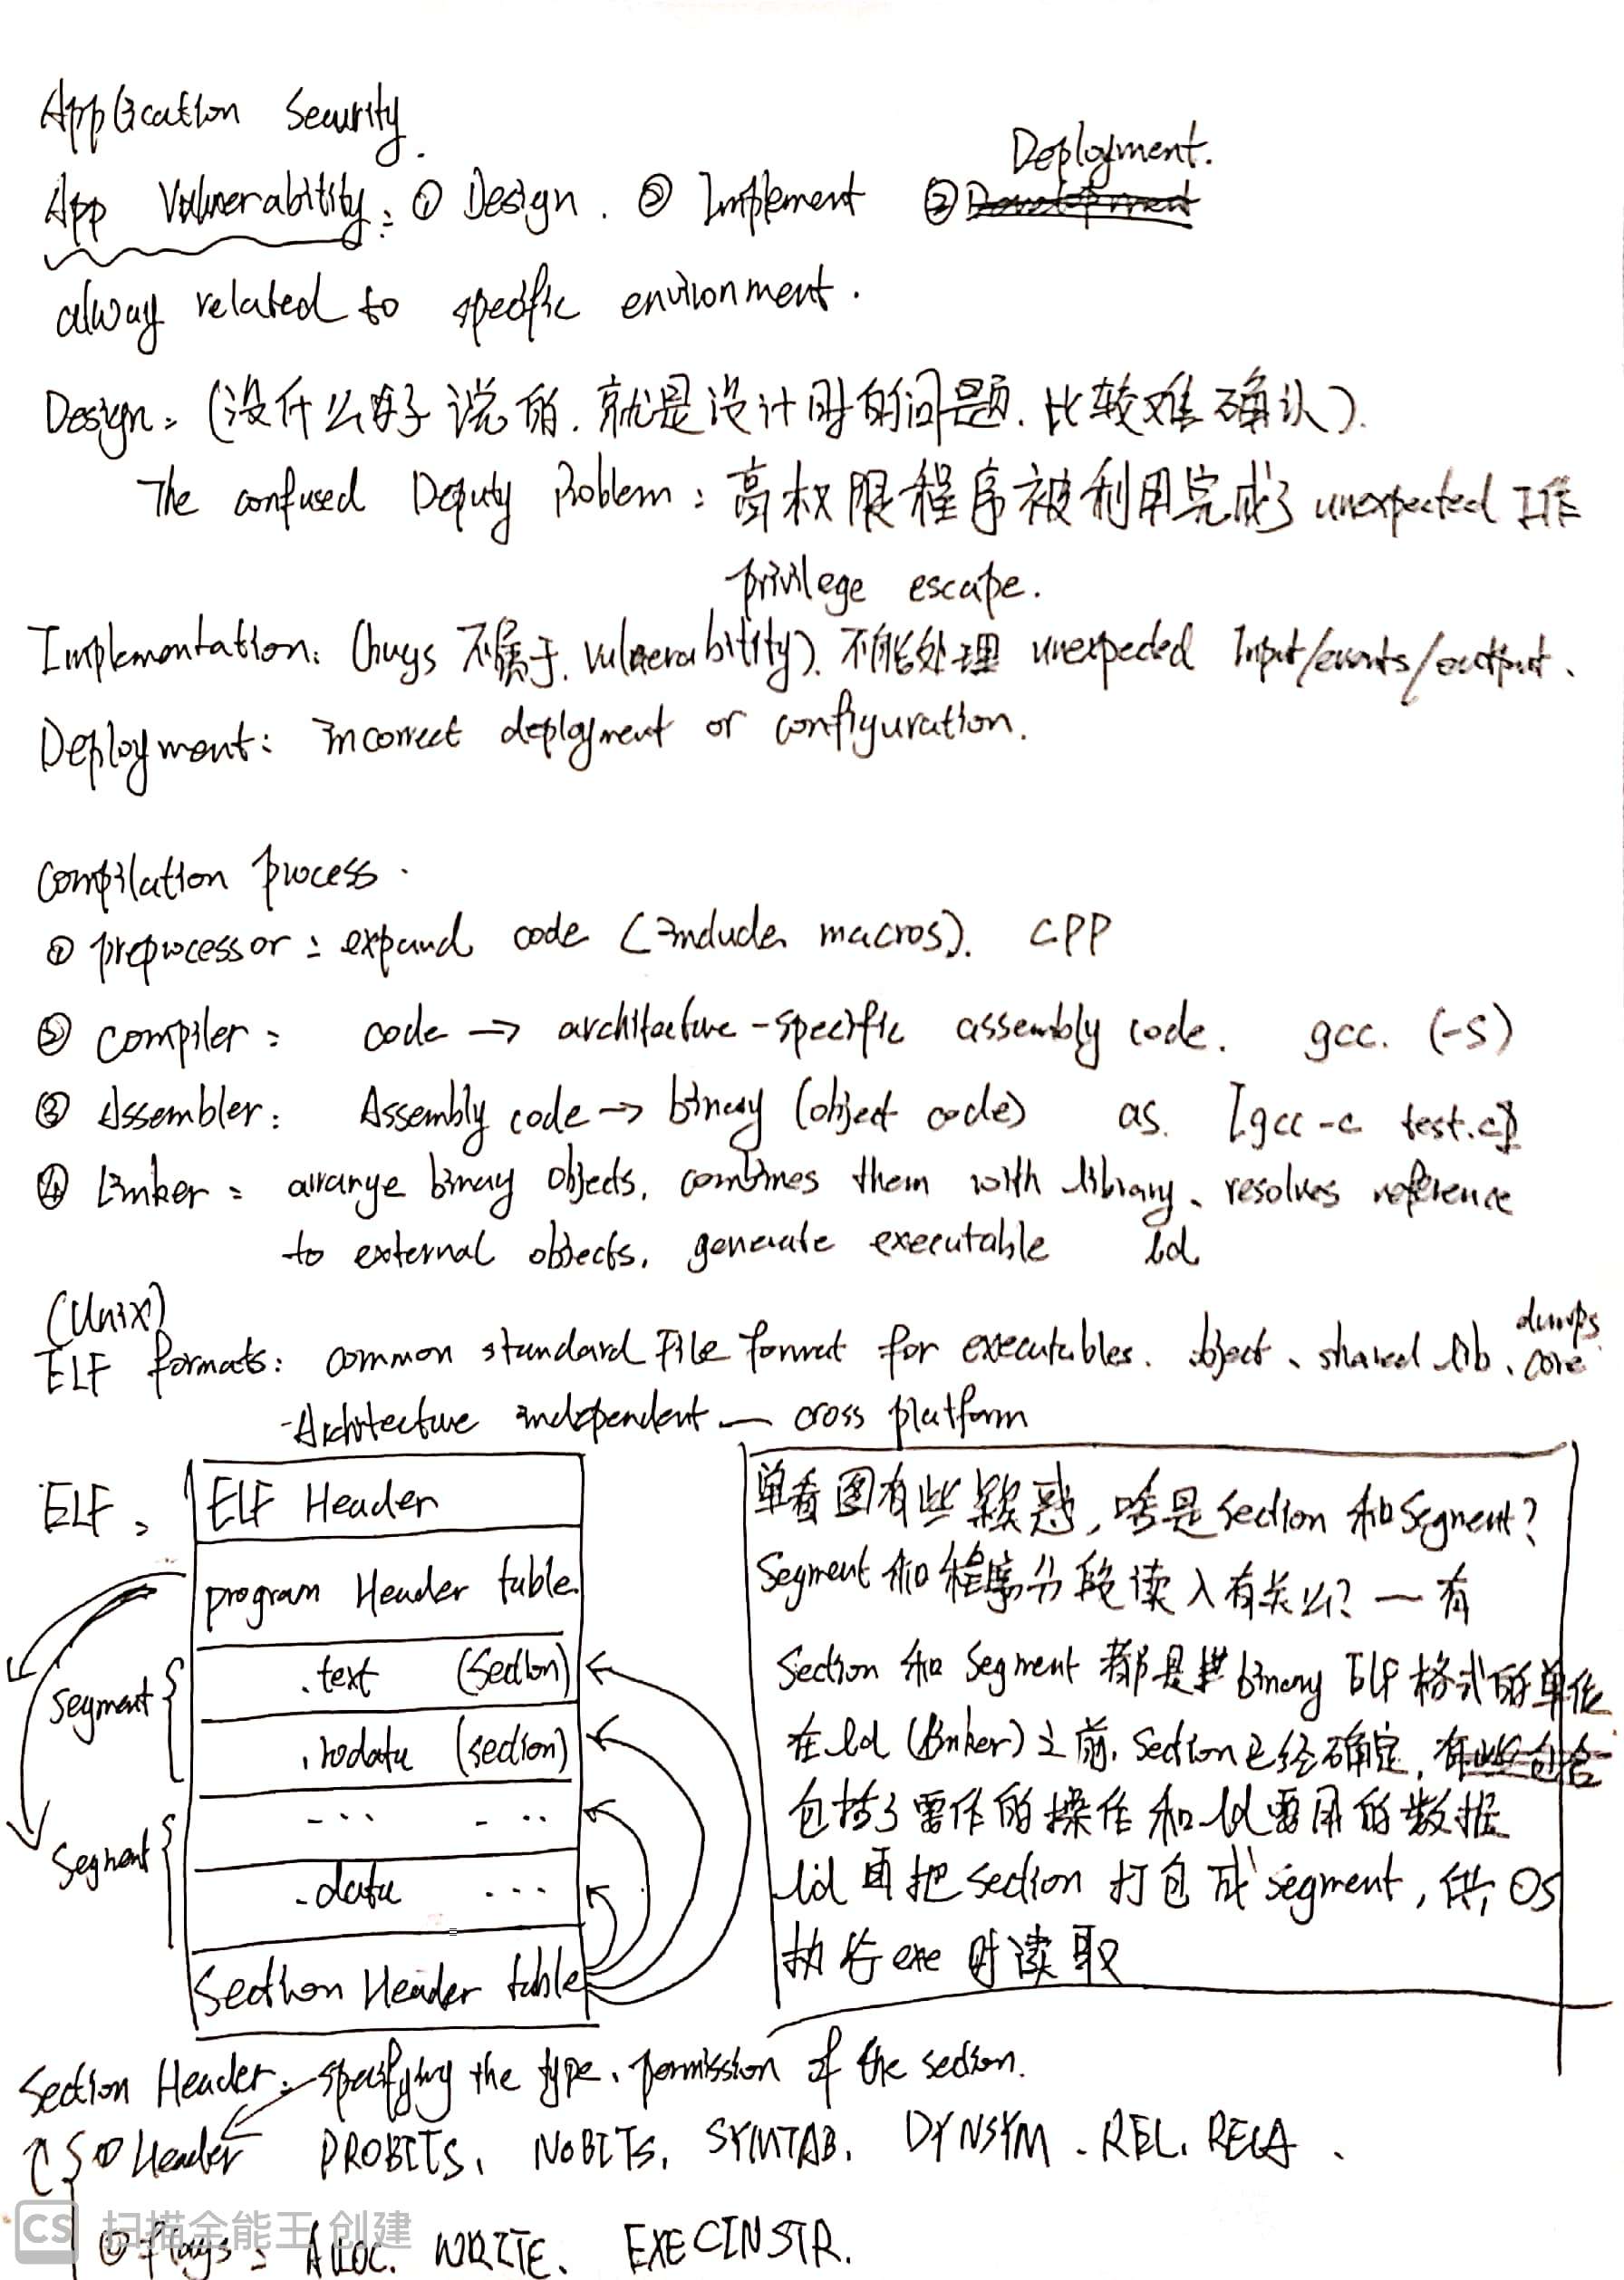 Application Security.
App Vulnerability: ① Design. ② Implement ③ Development Deployment.
alway related to specific environment.
Design: (没什么好说的. 就是设计时的问题. 比较难确认).
The confused Deputy Problem: 高权限程序被利用完成了 unexpected 工作
privilege escape.
Implementation: (bugs 不属于. vulnerability). 不能处理 unexpected Input/events/output、
Deployment: incorrect deployment or configuration.
Compilation process.
① preprocessor: expand code (include macros). CPP
② Compiler: code → architecture-specific assembly code. gcc. (-S)
③ Assembler: Assembly code → binary (object code) as. [gcc -c test.c]
④ Linker: arrange binary objects, combines them with library、resolves reference
to external objects, generate executable ld
(Unix)
ELF formats: common standard File format for executables. object、shared lib、core dumps
-Architecture independent — cross platform
ELF:
ELF Header
program Header table
Segment
.text (section)
.rodata (section)
Segment
... ...
.data ...
Section Header table
单看图有些疑惑, 啥是section 和 segment?
Segment 和程序分段读入有关么? 一有
Section 和 segment 都是 binary ELF 格式的单位
在 ld (linker) 之前. Section已经确定, 有些包含
包括了需作的操作和 ld 要用的数据
ld 再把 section 打包成 segment, 供 OS
执行 exe 时读取
Section Header: specifying the type、permission of the section.
① Header PROBITS, NOBITS, SYMTAB, DYNSYM. REL, RELA、
② flags: ALLOC. WRITE. EXECINSTR.
CS 扫描全能王 创建